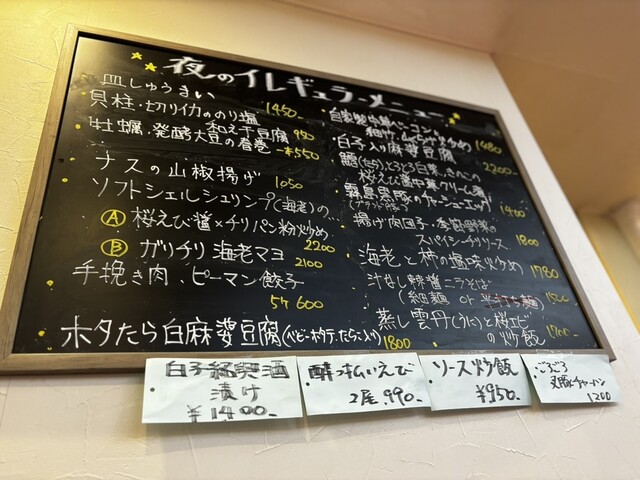 夜のイレギュラーメニュー
皿しゅうまい
貝柱・切りイカののり塩 1450-
和え干豆腐 990
牡蠣、発酵大豆の春巻 一本550
ナスの山椒揚げ 1050
ソフトシェルシュリンプ(海老)の…
Ⓐ 桜えび醤×チリパン粉炒め 2200
Ⓑ ガリチリ海老マヨ 2100
手挽き肉、ピーマン餃子
5ケ 600
ホタたら白麻婆豆腐(ベビーホタテ、たらこ入り) 1800
自家製中華ベーコンと
炒め 1480
白子入り麻婆豆腐
2200-
鱈(たら)と
桜えび醤中華クリーム煮
1400
揚げ肉団子・季節野菜の
スパイシーチリソース 1800
海老と柿の塩味炒め 1780
汁なし辣醤ニラそば
(細麺 or
蒸し雲丹(うに)と桜エビ
の炒飯
白子紹興酒
漬け
¥1400-
酔っ払いえび
2尾 990-
ソース炒飯
¥950-
ごろごろ
チャーハン
1200